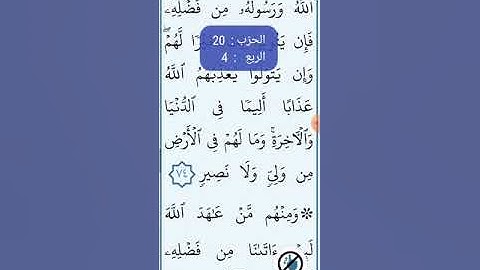 ٱللَّهُ وَرَسُولُهُۥ مِن فَضْلِهِۦ
فَإِن لَّهُمْۖ
الحزب : 20
الربع : 4
وَإِن يَتَوَلَّوْا۟ يُعَذِّبْهُمُ ٱللَّهُ
عَذَابًا أَلِيمًا فِى ٱلدُّنْيَا
وَٱلْـَٔاخِرَةِۚ وَمَا لَهُمْ فِى ٱلْأَرْضِ
مِن وَلِىٍّ وَلَا نَصِيرٍ ٧٤
۞ وَمِنْهُم مَّنْ عَـٰهَدَ ٱللَّهَ
ءَاتَىٰنَا مِن فَضْلِهِۦ